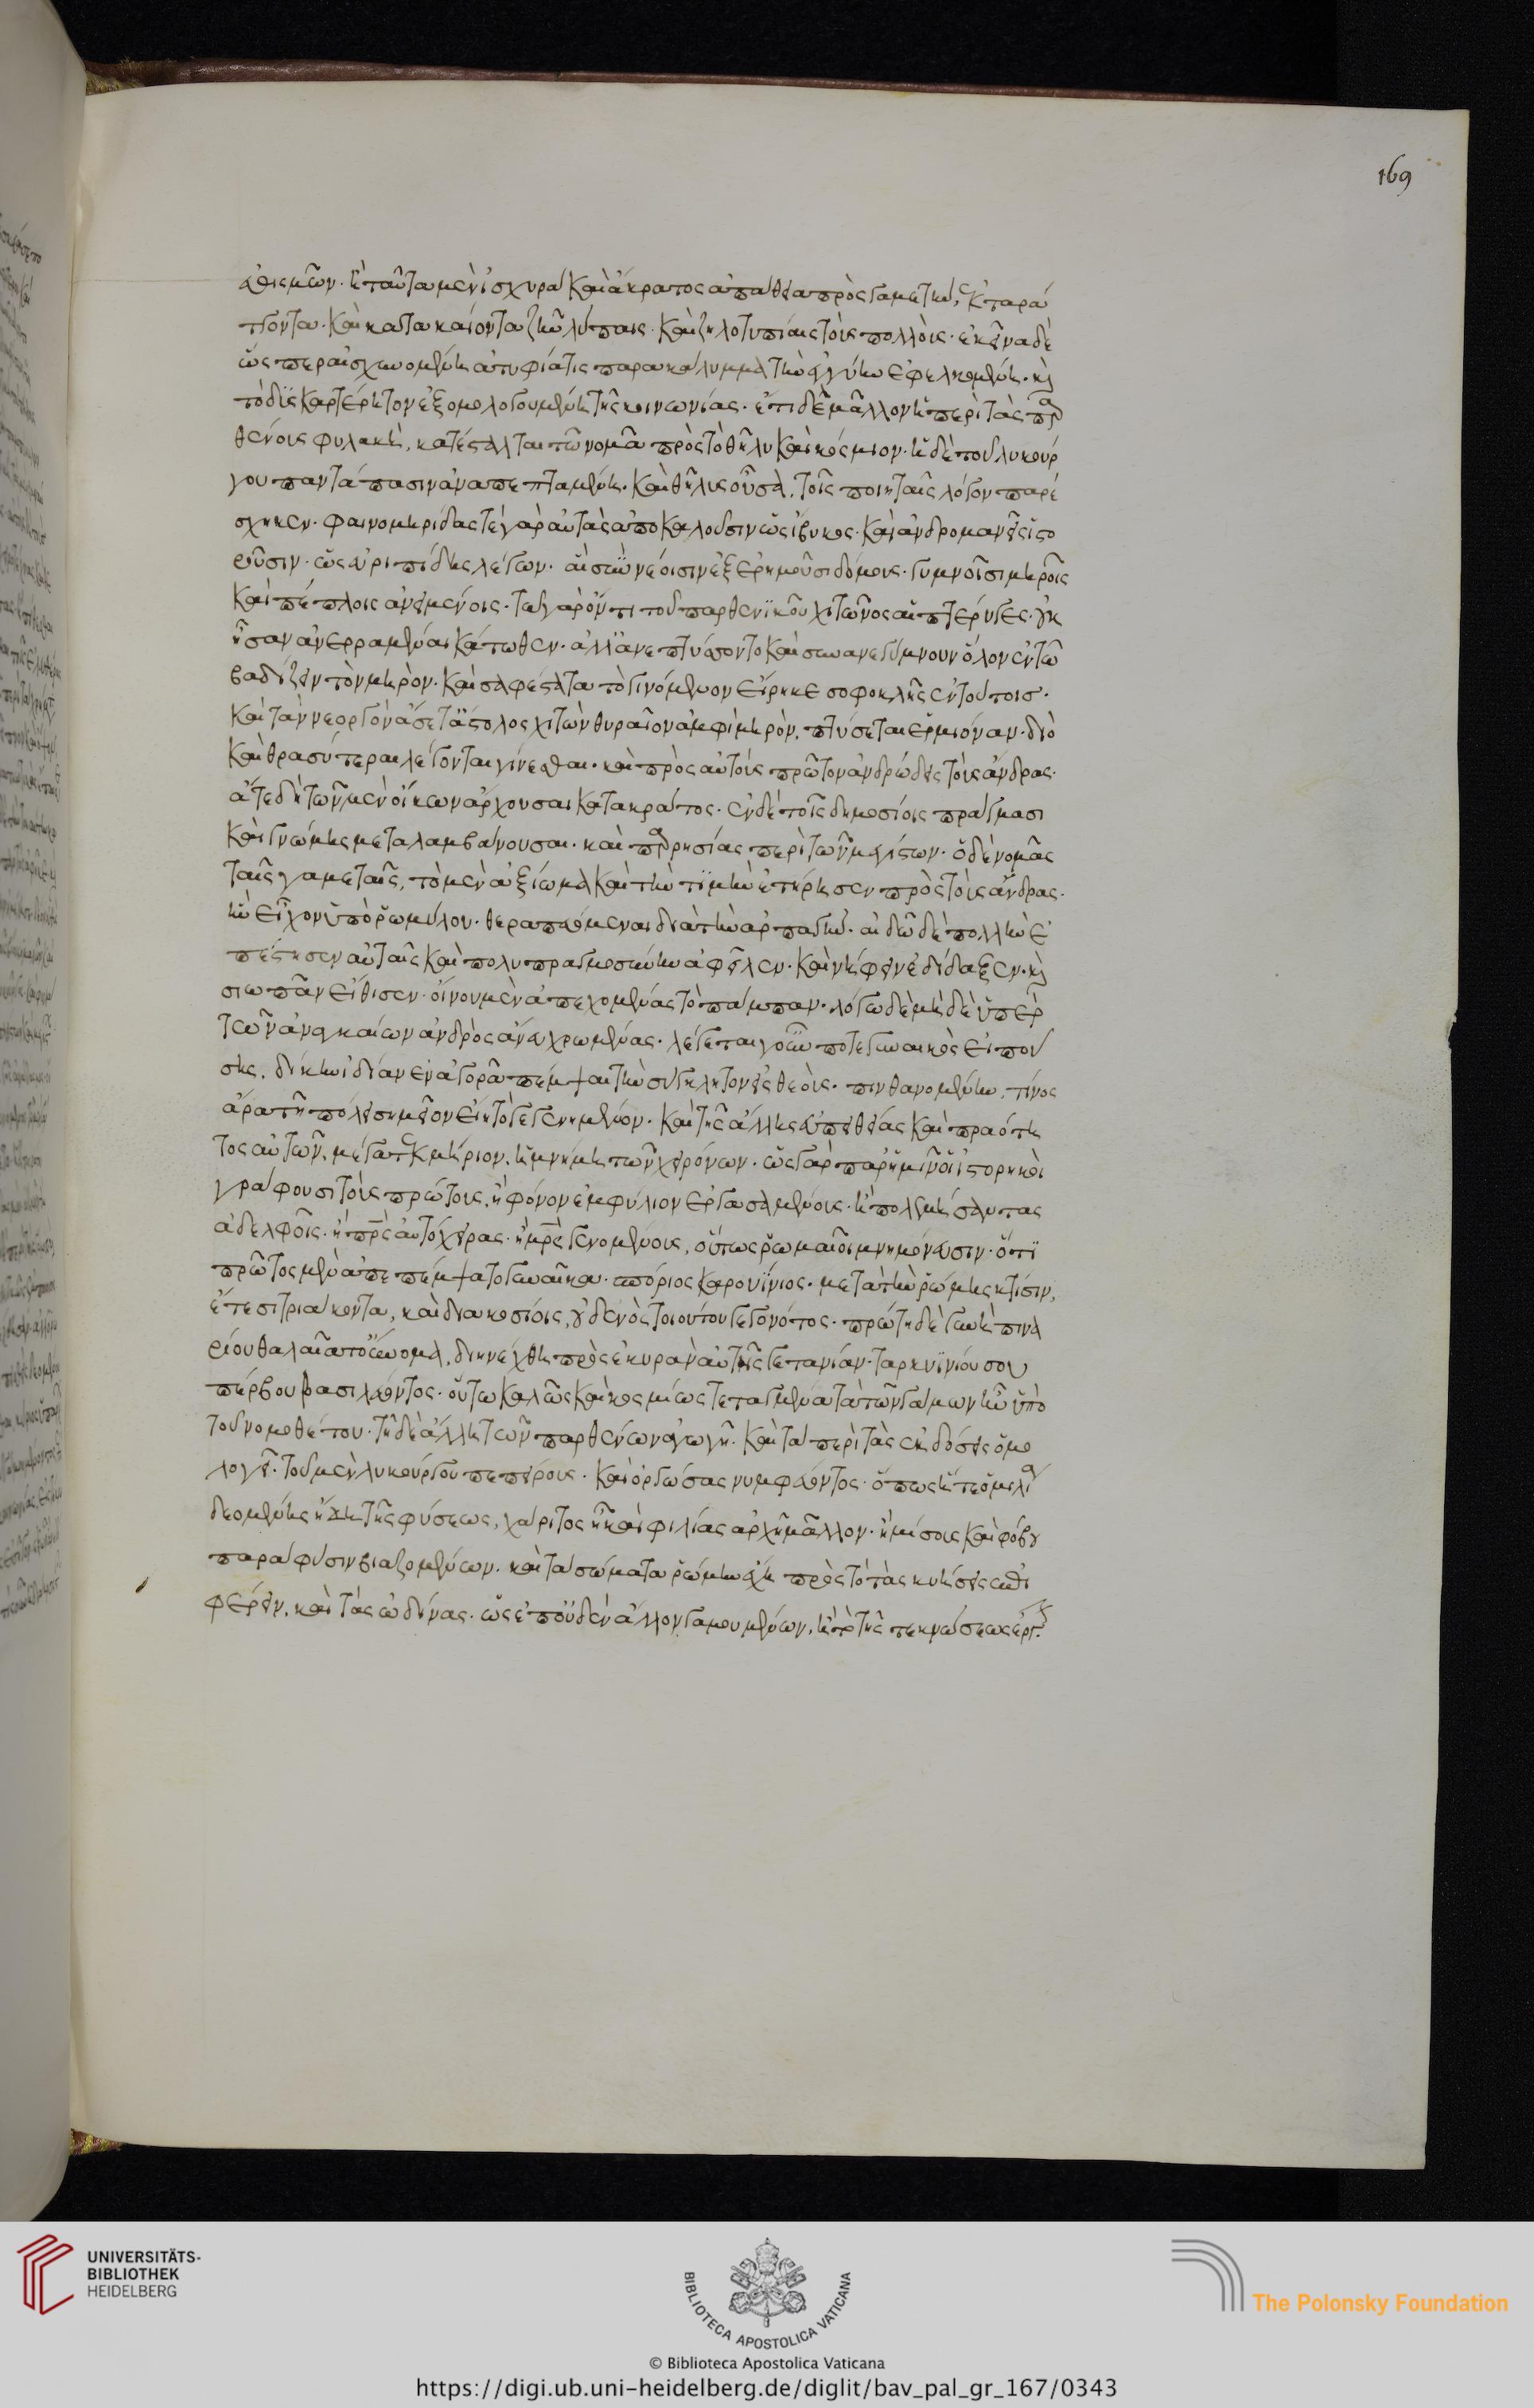 169
ἀφιεμένων. ἢ ταῦτα μὲν ἰσχυρὰ καὶ ἄκρατος ἀπάθεια πρὸς γαμετὴν, τὰ ἐκταράτ
τοντα. καὶ κατακαίοντα ζῶν λύπαις. καὶ ζηλοτυπίαις τοὺς πολλούς. ἐκεῖνα δὲ
ὥσπερ αἰσχυνομένης ἀτυφία τις παρακάλυμμα τὴν ἐγγύην ἐφελκομένης. καὶ
τὸ δυσκαρτέρητον ἐξομολογουμένης τῆς κοινωνίας. ἔτι δὲ μᾶλλον ἡ περὶ τὰς παρ
θένους φυλακὴ, κατέσταλται τῷ νομᾶ πρὸς τὸ θῆλυ καὶ κόσμιον. ἡ δὲ τοῦ λυκούρ
γου παντάπασιν ἀναπεπταμένη. καὶ θῆλυς οὖσα, τοῖς ποιηταῖς λόγον παρέ
σχηκεν. φαινομηρίδας τε γὰρ αὐτὰς ἀποκαλοῦσιν ὡς ἴβυκος. καὶ ἀνδρομανεῖς λοιδο
ροῦσιν. ὡς εὐριπίδης λέγων. αἳ σὺν νέοισιν ἐξερημοῦσι δόμους. γυμνοῖσι μηροῖς
καὶ πέπλοις ἀνειμένοις. τῷ γὰρ ὄντι τοῦ παρθενικοῦ χιτῶνος αἱ πτέρυγες. οὐκ
ἦσαν ἀνερραμμέναι κάτωθεν. ἀλλ' ἀνεπτύσσοντο καὶ συνανεγύμνουν ὅλον ἐν τῷ
βαδίζειν τὸν μηρόν. καὶ σαφέστατα τὸ γινόμενον εἴρηκε σοφοκλῆς ἐν τούτοις.
καὶ τὰν νεορτὸν ἇς ἔτ' ἄστολος χιτὼν θυραῖον ἀμφὶ μηρὸν, πτύσεται ἑρμιόναν. διὸ
καὶ θρασύτεραι λέγονται γίνεσθαι. καὶ πρὸς αὐτοὺς πρῶτον ἀνδρώδεις τοὺς ἄνδρας.
ἅτε δὴ τῶν μὲν οἴκων ἄρχουσαι κατακράτος. ἐν δὲ τοῖς δημοσίοις πράγμασι
καὶ γνώμης μεταλαμβάνουσαι. καὶ παρρησίας περὶ τῶν μεγίστων. ὁ δὲ νομᾶς
ταῖς γαμεταῖς, τὸ μὲν ἀξίωμα καὶ τὴν τιμὴν ἐτήρησεν πρὸς τοὺς ἄνδρας.
ἣν εἶχον ὑπὸ ῥωμύλου. θεραπευόμεναι διὰ τὴν ἁρπαγήν. αἰδῶ δὲ πολλὴν ἐ
πέστησεν αὐταῖς καὶ πολυπραγμοσύνην ἀφεῖλεν. καὶ νήφειν ἐδίδαξεν. καὶ
σιωπᾶν εἴθισεν. οἴνου μὲν ἀπεχομένας τὸ πάμπαν. λόγω δὲ μηδὲ ὑπὲρ
τῶν ἀναγκαίων ἀνδρὸς ἄνευ χρωμένας. λέγεται γοῦν ποτε γυναικὸς εἰπού
σης. δίκην ἰδίαν ἐν ἀγορᾶ πέμψαι τὴν σύγκλητον εἰς θεοὺς. πυνθανομένην, τίνος
ἄρα τῆ πόλει σημεῖον εἴη τὸ γεγενημένον. καὶ τῆς ἄλλης εὐπειθείας καὶ πραότη
τος αὐτῶν, μέγα τεκμήριον, ἡ μνήμη τῶν χειρόνων. ὡς γὰρ παρ' ἡμῖν οἱ ἱστορικοὶ
γράφουσι τοὺς πρώτους, ἢ φόνον ἐμφύλιον ἐργασαμένους. ἢ πολεμήσαντας
ἀδελφοῖς. ἢ πατρὸς αὐτόχειρας. ἢ μητρὸς γενομένους, οὕτως ῥωμαῖοι μνημονεύουσιν. ὅτι
πρῶτος μὲν ἀπεπέμψατο γυναῖκα. σπόριος καρουΐνιος. μετὰ τὴν ῥώμης κτίσιν,
ἔτεσι τριάκοντα, καὶ διακοσίοις, οὐδενὸς τοιούτου γεγονότος. πρώτη δὲ γυνὴ πινα
ρίου θαλαῖα τοὔνομα, διηνέχθη πρὸς ἑκυρὰν αὐτῆς γετανίαν. ταρκυϊνίου σου
πέρβου βασιλεύοντος. οὕτω καλῶς καὶ κοσμίως τεταγμένα τὰ τῶν γάμων ἦν ὑπὸ
τοῦ νομοθέτου. τῆ δὲ ἄλλη τῶν παρθένων ἀγωγῆ. καὶ τὰ περὶ τὰς ἐκδόσεις ὁμο
λογεῖ. τοῦ μὲν λυκούργου πεπείρους. καὶ ὀργώσας νυμφεύοντος. ὅπως ἥ τε ὁμιλία
δεομένης ἤδη τῆς φύσεως, χάριτος ἦ καὶ φιλίας ἀρχὴ μᾶλλον. ἢ μίσους καὶ φόβου
παρὰ φύσιν βιαζομένων. καὶ τὰ σώματα ῥώμην ἔχη πρὸς τὸ τὰς κυήσεις ἀνα
φέρειν, καὶ τὰς ὠδίνας. ὡς ἐπ' οὐδὲν ἄλλο γαμουμένων, ἢ τὸ τῆς τεκνώσεως ἔργ.
UNIVERSITÄTS-
BIBLIOTHEK
HEIDELBERG
BIBLIOTECA APOSTOLICA VATICANA
The Polonsky Foundation
© Biblioteca Apostolica Vaticana
https://digi.ub.uni-heidelberg.de/diglit/bav_pal_gr_167/0343